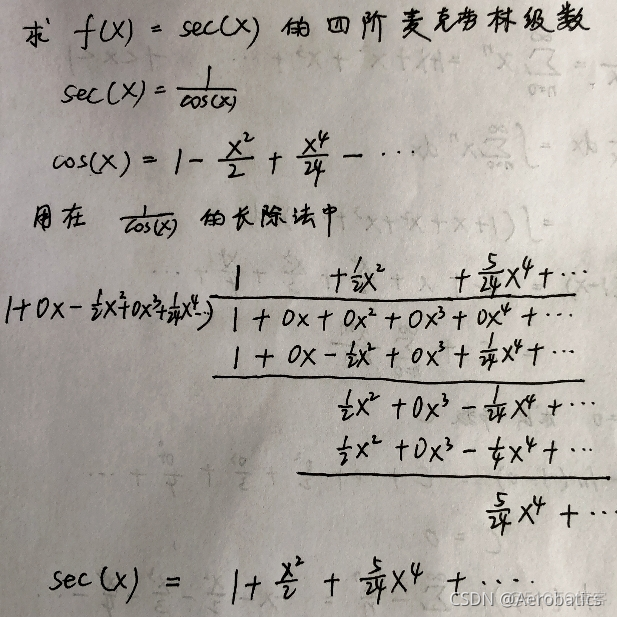 求 f(x) = sec(x) 的四阶麦克劳林级数
sec(x) = 1/cos(x)
cos(x) = 1 - x²/2 + x⁴/24 - ⋯
用在 1/cos(x) 的长除法中
1 + ½x² + 5/24 x⁴ + ⋯
1 + 0x - ½x² + 0x³ + 1/24 x⁴ ⋯ ) 1 + 0x + 0x² + 0x³ + 0x⁴ + ⋯
1 + 0x - ½x² + 0x³ + 1/24 x⁴ + ⋯
½x² + 0x³ - 1/24 x⁴ + ⋯
½x² + 0x³ - ¼x⁴ + ⋯
5/24 x⁴ + ⋯
sec(x) = 1 + x²/2 + 5/24 x⁴ + ⋯⋅
CSDN @Aerobatics